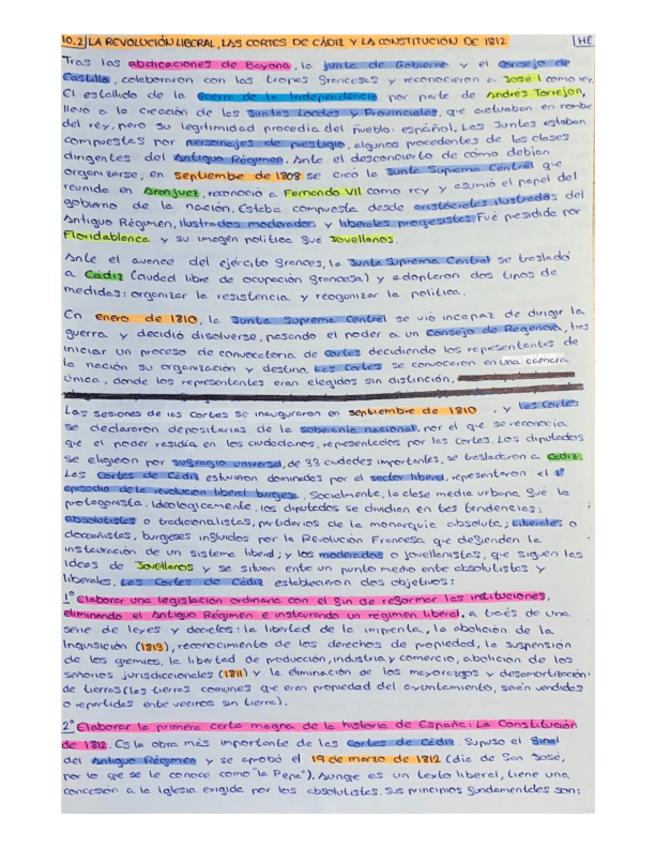 10.2 LA REVOLUCIÓN LIBERAL, LAS CORTES DE CÁDIZ Y LA CONSTITUCIÓN DE 1812 HE
Tras las abdicaciones de Bayona, la Junta de Gobierno y el Consejo de
Castilla, colaboraron con las tropas francesas y reconocieron a José I como rey.
El estallido de la Guerra de la Independencia por parte de Andrés Torrejón,
llevó a la creación de las Juntas Locales y Provinciales, que actuaban en nombre
del rey, pero su legitimidad procedía del pueblo español. Las Juntas estaban
compuestas por personajes de prestigio, algunos procedentes de las clases
dirigentes del Antiguo Régimen. Ante el desconcierto de cómo debían
organizarse, en septiembre de 1808 se creó la Junta Suprema Central que
reunida en Aranjuez, reconoció a Fernando VII como rey y asumió el papel del
gobierno de la nación. Estaba compuesta desde aristócratas ilustrados del
Antiguo Régimen, ilustrados moderados y liberales progresistas. Fue presidida por
Floridablanca y su imagen política fue Jovellanos.
Ante el avance del ejército francés, la Junta Suprema Central se trasladó
a Cádiz (ciudad libre de ocupación francesa) y adoptaron dos tipos de
medidas: organizar la resistencia y reoganizar la política.
En enero de 1810, la Junta Suprema Central se vió incapaz de dirigir la
guerra y decidió disolverse, pasando el poder a un Consejo de Regencia, tras
iniciar un proceso de convocatoria de cortes decidiendo los representantes de
la nación su organización y destino. Las Cortes se convocaron en una cámara
única, donde los representantes eran elegidos sin distinción.
Las sesiones de las Cortes se inauguraron en septiembre de 1810. y las Cortes
se declararon depositarias de la soberanía nacional, por el que se reconocía
que el poder residía en los ciudadanos, representados por las Cortes. Los diputados
se eligieron por sufragio universal, de 33 ciudades importantes, se trasladaron a Cádiz.
Las Cortes de Cádiz estuvieron dominadas por el sector liberal, representaron el 1º
episodio de la revolución liberal burgesa. Socialmente, la clase media urbana fue la
protagonista. Ideológicamente, los diputados se dividían en tres tendencias:
absolutistas o tradicionalistas, partidarios de la monarquía absoluta; Liberales o
doceañistas, burgeses influidos por la Revolución Francesa que defienden la
instauración de un sistema liberal; y los moderados o jovellanistas, que siguen las
ideas de Jovellanos y se situan ente un punto medio ente absolutistas y
liberales. Las Cortes de Cádiz establecieron dos objetivos:
1º Elaborar una legislación ordinaria con el fin de reformar las instituciones,
eliminando el Antiguo Régimen e instaurando un régimen liberal, a través de una
serie de leyes y decretos: la libertad de la imprenta, la abolición de la
Inquisición (1813), reconocimiento de los derechos de propiedad, la suspensión
de los gremios, la libertad de producción, industria y comercio, abolición de los
señoríos jurisdiccionales (1811) y la eliminación de los mayorazgos y desamortización
de tierras (las tierras comunes que eran propiedad del ayuntamiento, serán vendidas
o repartidas ente vecinos sin tierra).
2º Elaborar la primera carta magna de la historia de España: La Constitución
de 1812. Es la obra más importante de las Cortes de Cádiz. Supuso el final
del Antiguo Régimen y se aprobó el 19 de marzo de 1812 (día de San José,
por lo que se le conoce como "la Pepa"). Aunqe es un texto liberal, tiene una
concesión a la Iglesia exigida por los absolutistas. Sus principios fundamentales son: